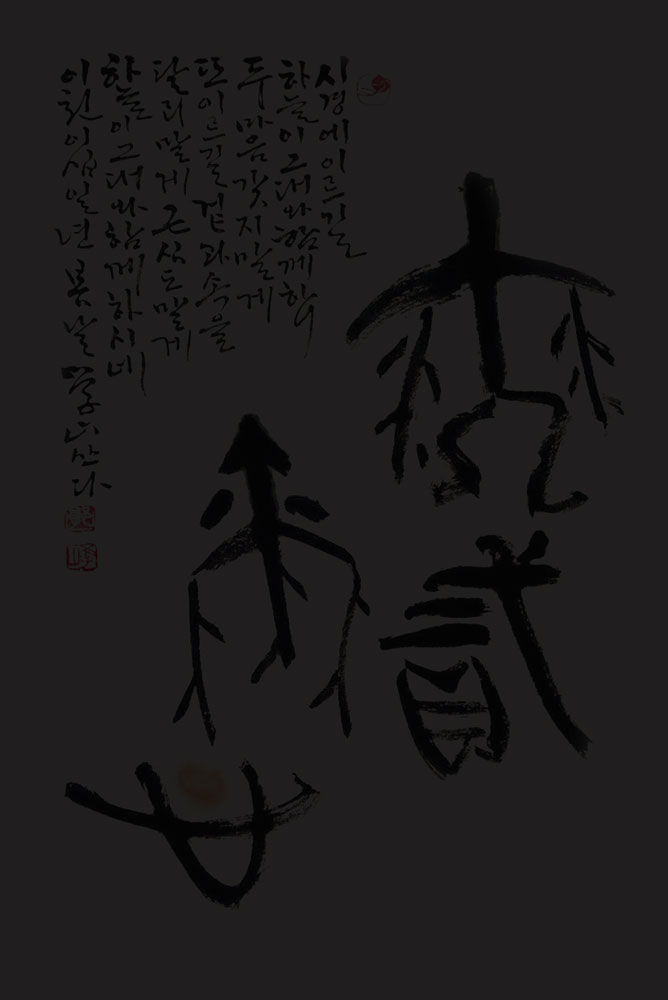 시경에이르길
하늘이그대와함께하니
두마음갖지말게
또이르길겉과속을
달리말게근심도말게
하늘이그대와함께하시네
이천이십일년봄날学山쓰다
無貳
爾心